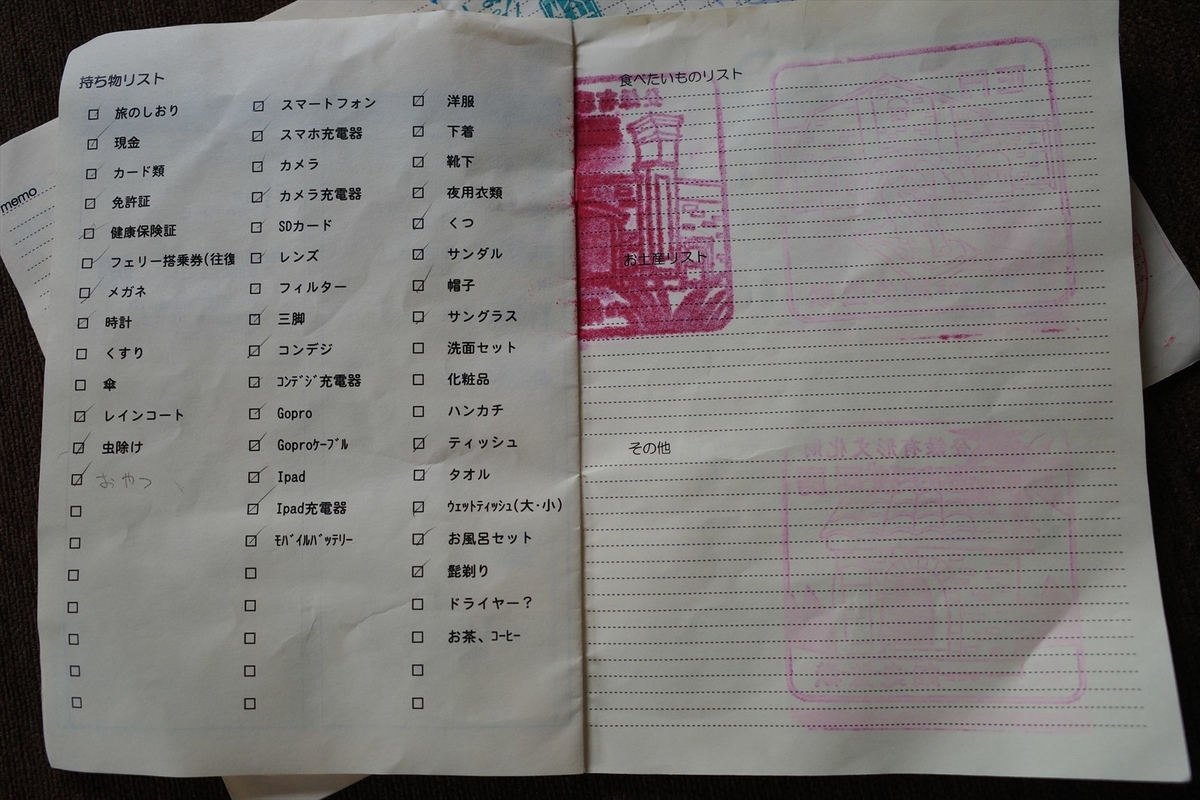 持ち物リスト
旅のしおり
現金
カード類
免許証
健康保険証
フェリー搭乗券(往復
メガネ
時計
くすり
傘
レインコート
虫除け
おやつ
スマートフォン
スマホ充電器
カメラ
カメラ充電器
SDカード
レンズ
フィルター
三脚
コンデジ
ｺﾝﾃﾞｼﾞ充電器
Gopro
Goproｹｰﾌﾞﾙ
Ipad
Ipad充電器
ﾓﾊﾞｲﾙﾊﾞｯﾃﾘｰ
洋服
下着
靴下
夜用衣類
くつ
サンダル
帽子
サングラス
洗面セット
化粧品
ハンカチ
ティッシュ
タオル
ｳｪｯﾄﾃｨｯｼｭ(大･小)
お風呂セット
髭剃り
ドライヤー？
お茶、ｺｰﾋｰ
食べたいものリスト
お土産リスト
その他
memo